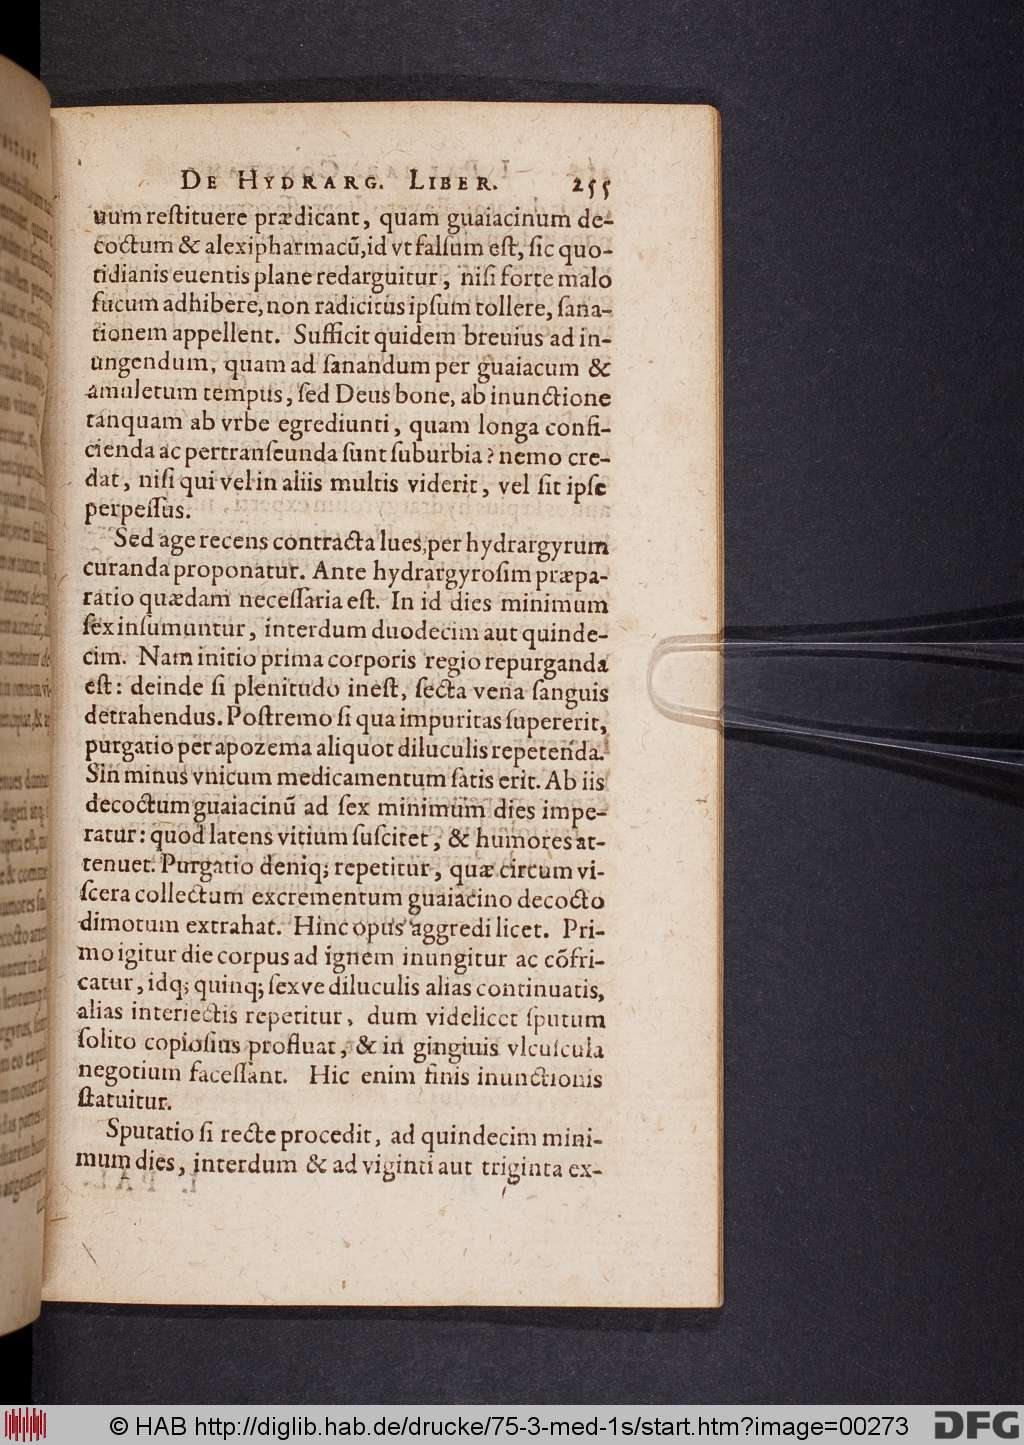 DE HYDRARG. LIBER. 255
uum restituere prædicant, quam guaiacinum de-
coctum & alexipharmacũ, id vt falsum est, sic quo-
tidianis euentis plane redarguitur, nisi forte malo
fucum adhibere, non radicitus ipsum tollere, sana-
tionem appellent. Sufficit quidem breuius ad in-
ungendum, quam ad sanandum per guaiacum &
amuletum tempus, sed Deus bone, ab inunctione
tanquam ab vrbe egrediunti, quam longa confi-
cienda ac pertranseunda sunt suburbia? nemo cre-
dat, nisi qui vel in aliis multis viderit, vel sit ipse
perpessus.
Sed age recens contracta lues, per hydrargyrum
curanda proponatur. Ante hydrargyrosim præpa-
ratio quædam necessaria est. In id dies minimum
sex insumuntur, interdum duodecim aut quinde-
cim. Nam initio prima corporis regio repurganda
est: deinde si plenitudo inest, secta vena sanguis
detrahendus. Postremo si qua impuritas supererit,
purgatio per apozema aliquot diluculis repetenda.
Sin minus vnicum medicamentum satis erit. Ab iis
decoctum guaiacinũ ad sex minimum dies impe-
ratur: quod latens vitium suscitet, & humores at-
tenuet. Purgatio deniq; repetitur, quæ circum vi-
scera collectum excrementum guaiacino decocto
dimotum extrahat. Hinc opus aggredi licet. Pri-
mo igitur die corpus ad ignem inungitur ac cõfri-
catur, idq; quinq; sexve diluculis alias continuatis,
alias interiectis repetitur, dum videlicet sputum
solito copiosius profluat, & in gingiuis vlcuscula
negotium facessant. Hic enim finis inunctionis
statuitur.
Sputatio si recte procedit, ad quindecim mini-
mum dies, interdum & ad viginti aut triginta ex-
© HAB http://diglib.hab.de/drucke/75-3-med-1s/start.htm?image=00273 DFG